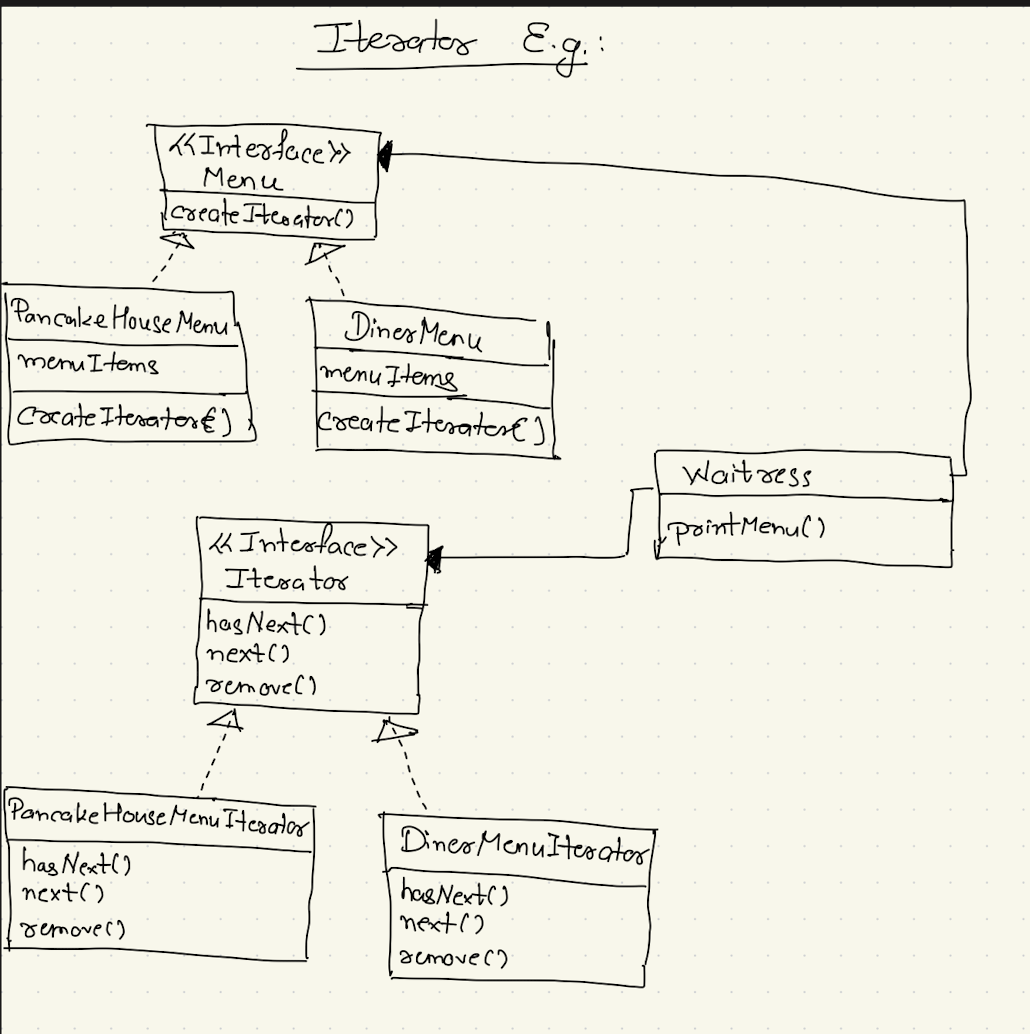 Iterator E.g.:
<<Interface>>
Menu
createIterator()
PancakeHouseMenu
menuItems
createIterator()
DinerMenu
menuItems
createIterator()
Waitress
printMenu()
<<Interface>>
Iterator
hasNext()
next()
remove()
PancakeHouseMenuIterator
hasNext()
next()
remove()
DinerMenuIterator
hasNext()
next()
remove()